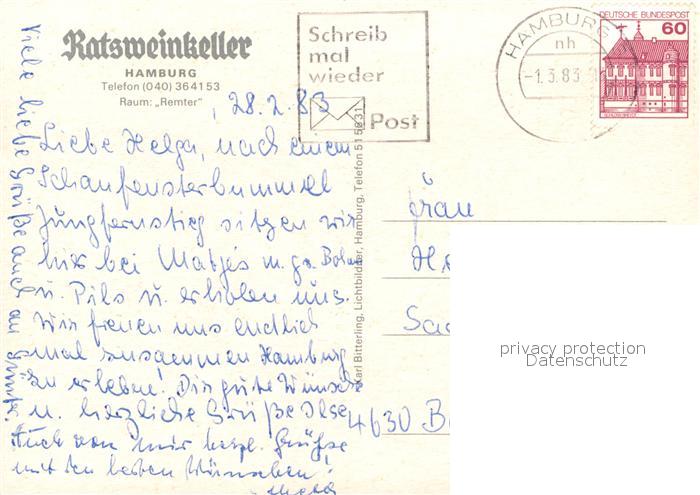 Ratsweinkeller
HAMBURG
Telefon (040) 364153
Raum: „Remter"
Schreib
mal
wieder
Post
HAMBURG 1
nh
-1.3.83
DEUTSCHE BUNDESPOST
60
SCHLOSS RHEYDT
, 28.2.83
Liebe Helga, nach einem
Schaufensterbummel
Jungfernstieg sitzen wir
hier bei Matjes m. gr. Bohnen
u. Pils u. erholen uns.
Wir freuen uns endlich
mal zusammen Hamburg
zu erleben! Dir gute Wünsche
u. herzliche Grüße Ilse
Auch von mir herzl. Grüße
mit den besten Wünschen!
Viele liebe Grüße auch an
Karl Bitterling, Lichtbildner, Hamburg, Telefon 515631
Frau
He
Sa
4630 B
privacy protection
Datenschutz